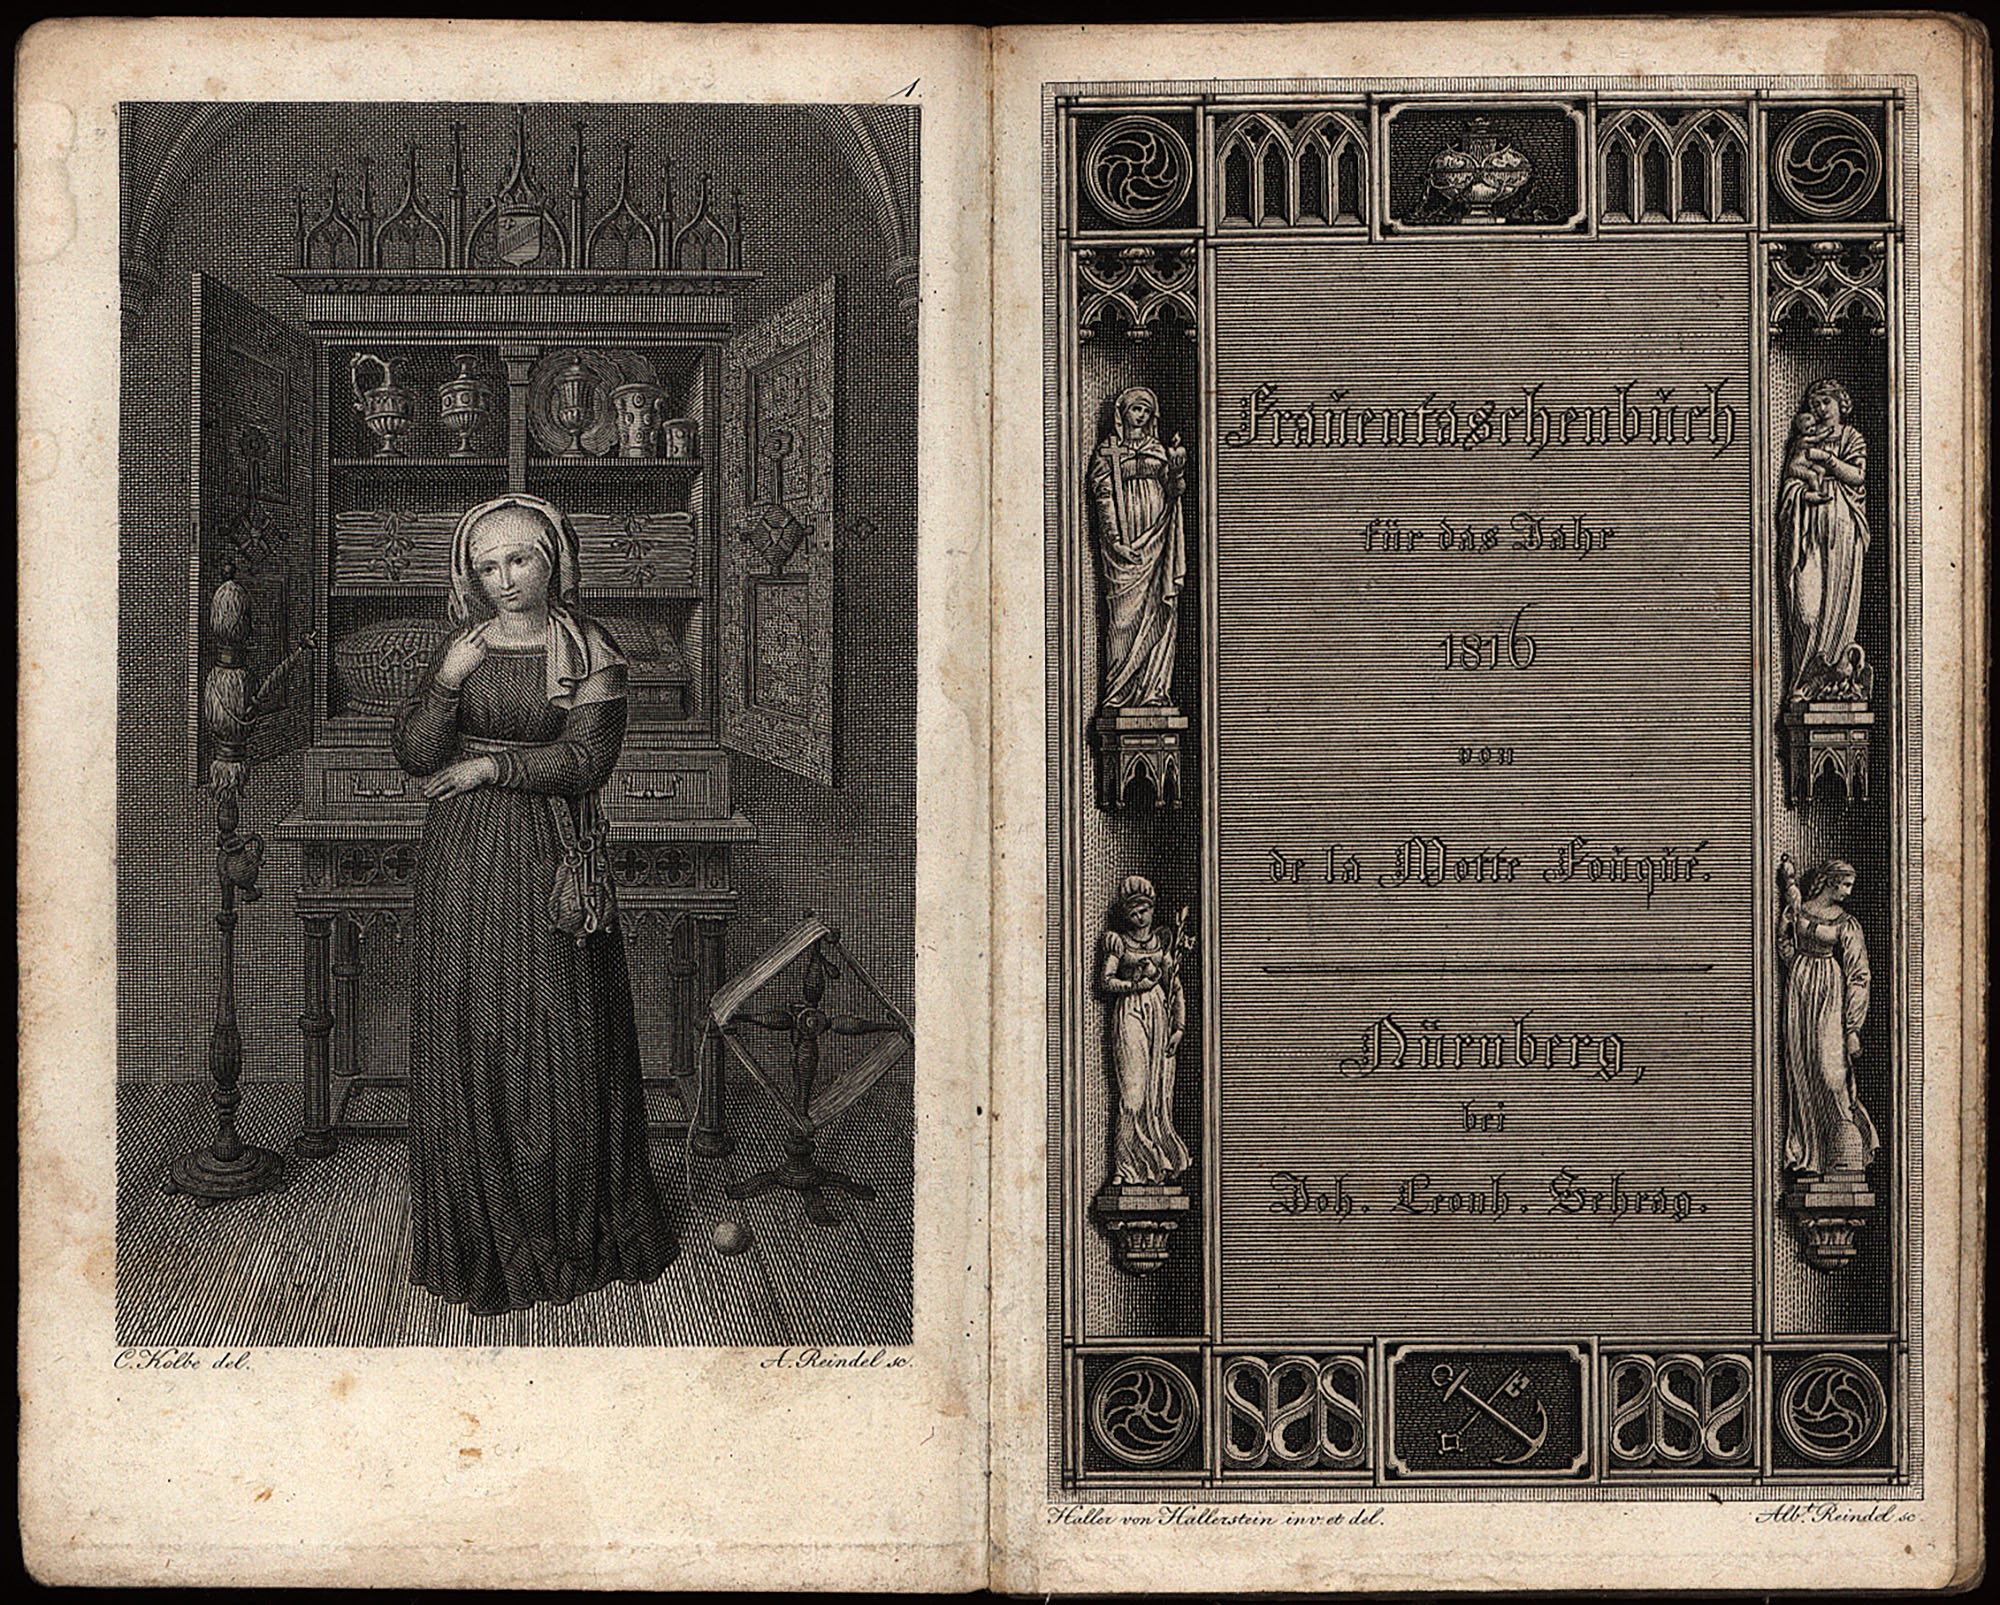 1.
C. Kolbe del.
A. Reindel sc.
Fraŭentaschenbŭch
für das Jahr
1816
von
de la Motte Foŭqŭé.
Nürnberg,
bei
Joh. Leonh. Schrag.
Haller von Hallerstein inv. et del.
Albt. Reindel sc.